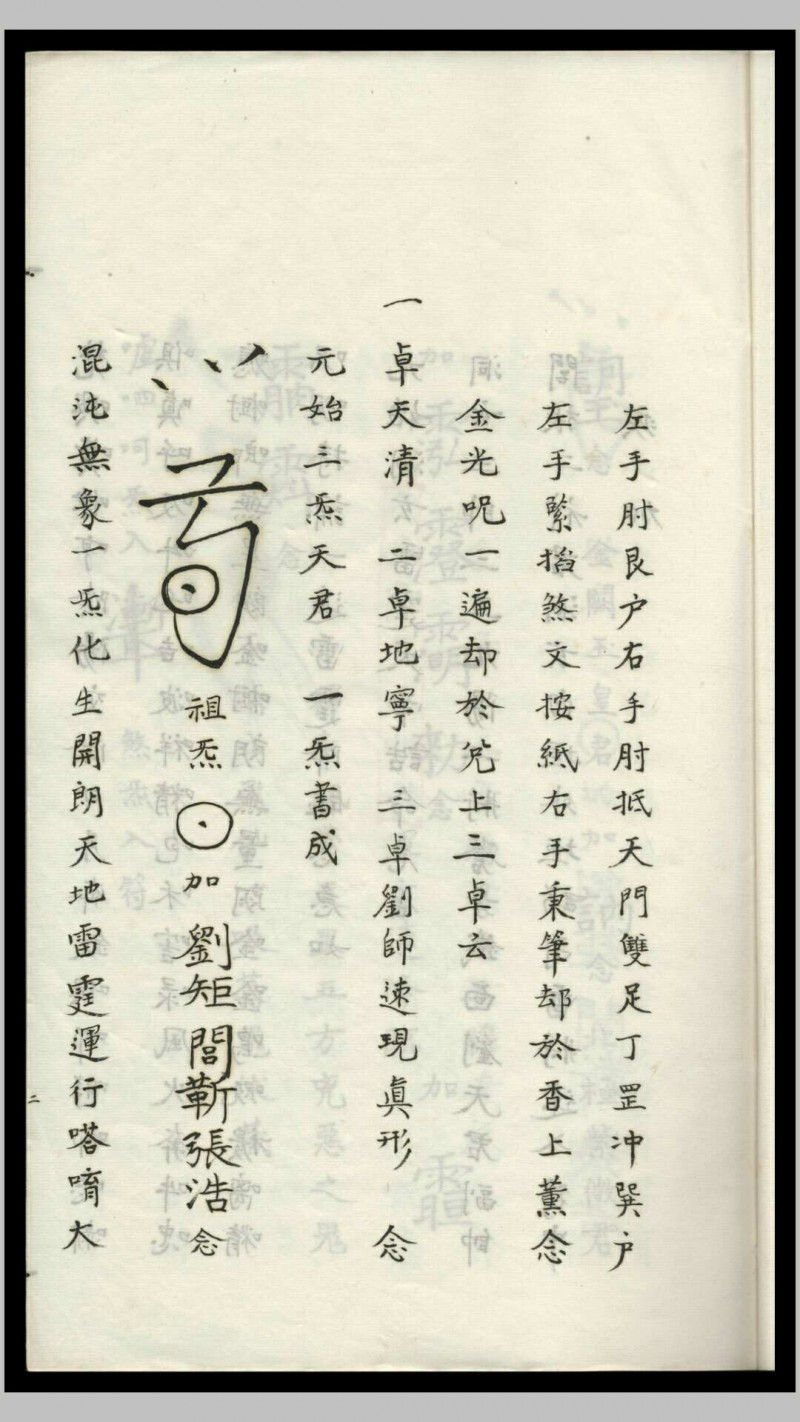 左手肘艮户右手肘抵天門雙足丁罡冲巽户
左手緊掐煞文按紙右手秉筆却於香上薰念
金光呪一遍却於兊上三卓云
一卓天清 二卓地寧 三卓劉師速現真形 念
元始三炁天君 一炁書成
祖炁 加劉矩閻蘄張浩念
混沌無象一炁化生開朗天地雷霆運行嗒唷大
二